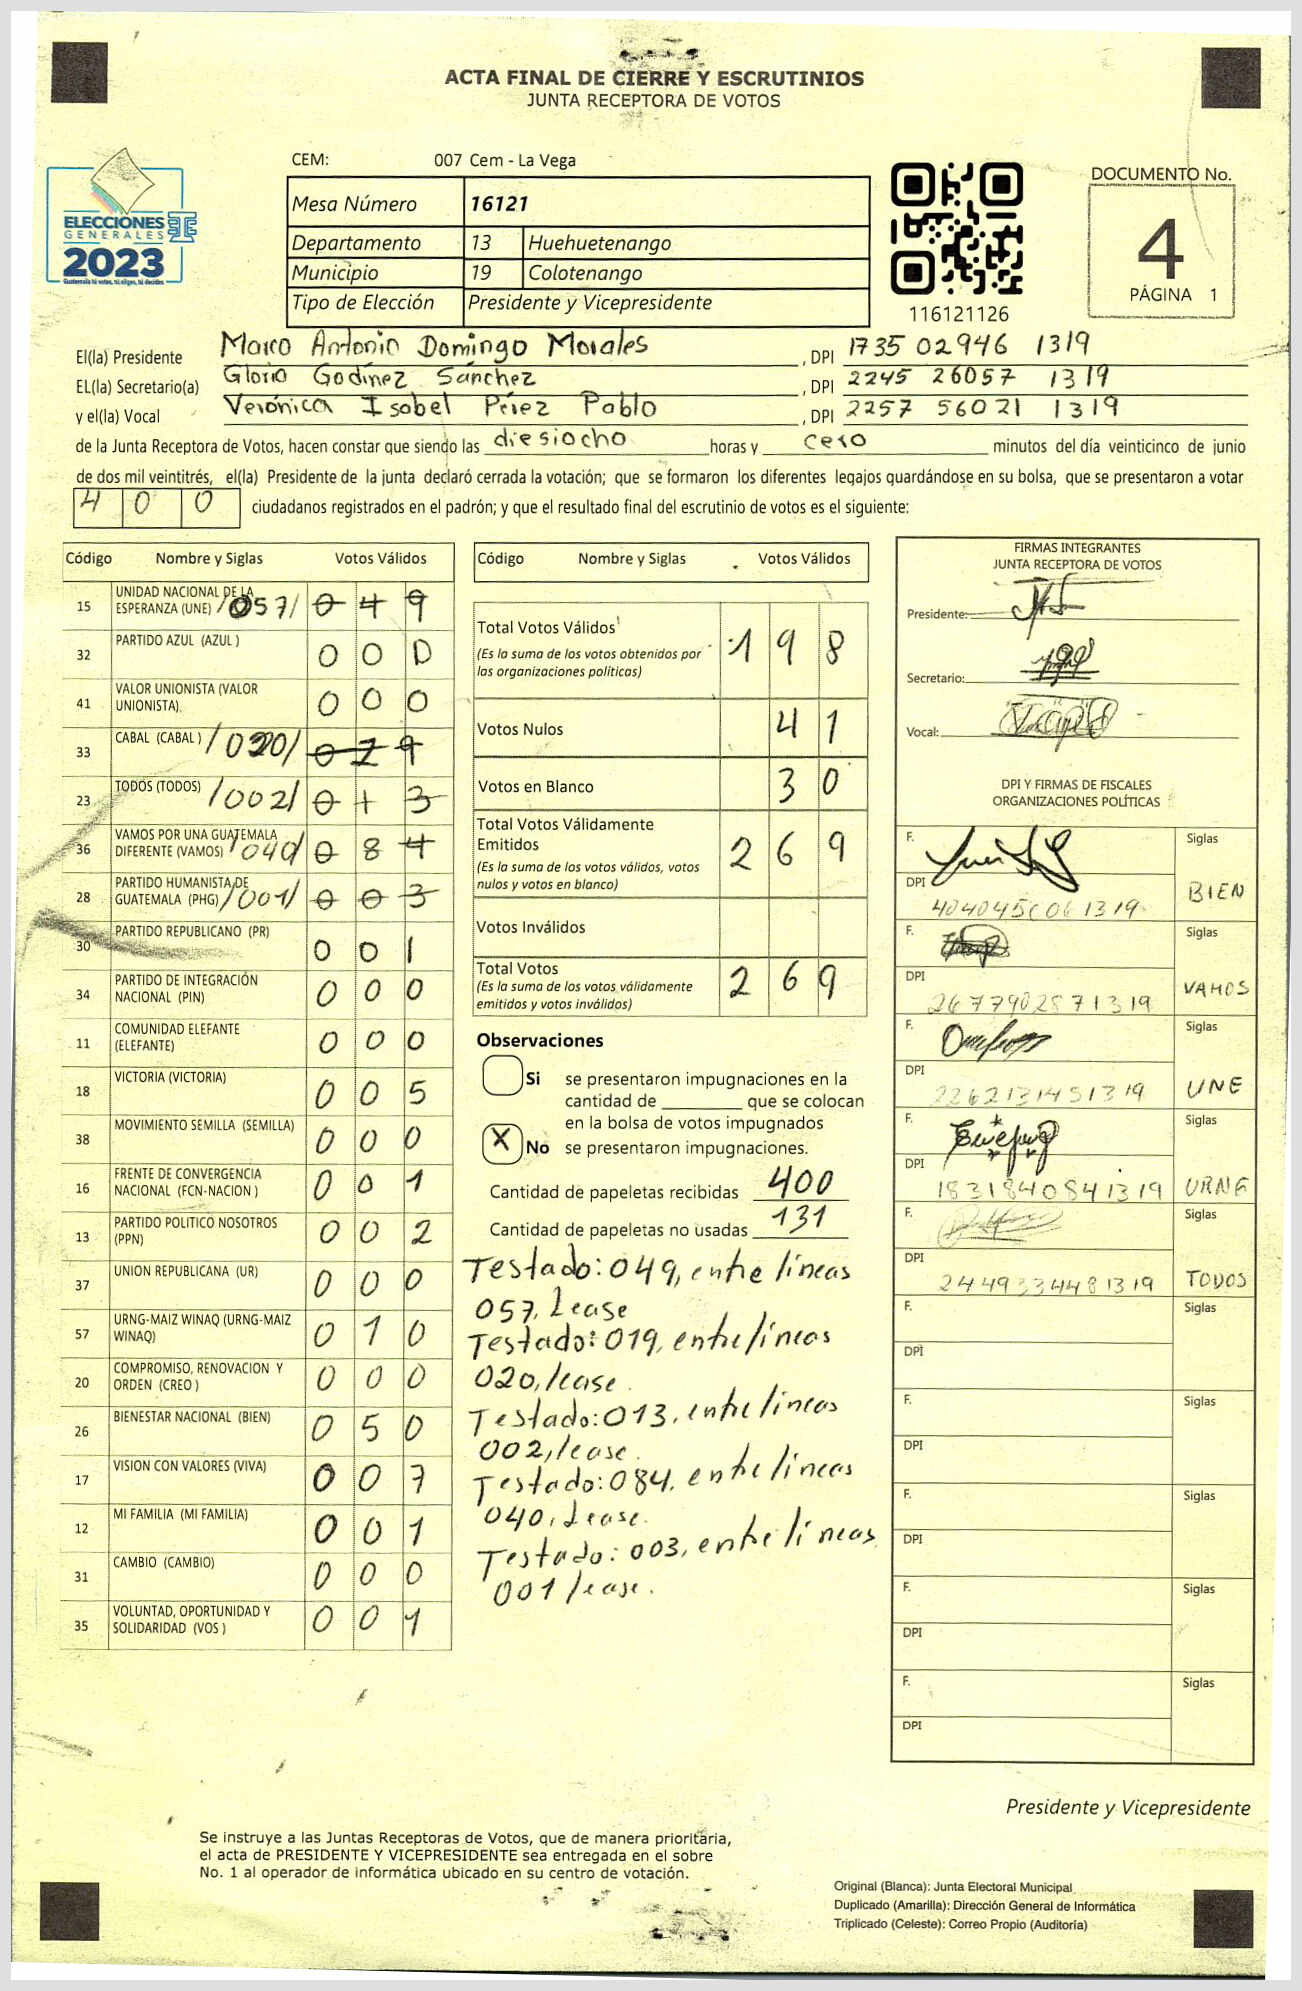 ACTA FINAL DE CIERRE Y ESCRUTINIOS
JUNTA RECEPTORA DE VOTOS
CEM: 007 Cem - La Vega
ELECCIONES
GENERALES
2023
Guatemala tú votas, tú eliges, tú decides
Mesa Número 16121
Departamento 13 Huehuetenango
Municipio 19 Colotenango
Tipo de Elección Presidente y Vicepresidente
116121126
DOCUMENTO No.
4
PÁGINA 1
El(la) Presidente Marco Antonio Domingo Morales, DPI 1735 02946 1319
EL(la) Secretario(a) Gloria Godínez Sánchez, DPI 2245 26057 1319
y el(la) Vocal Verónica Isabel Pérez Pablo, DPI 2257 56021 1319
de la Junta Receptora de Votos, hacen constar que siendo las diesiocho horas y cero minutos del día veinticinco de junio
de dos mil veintitrés, el(la) Presidente de la junta declaró cerrada la votación; que se formaron los diferentes legajos guardándose en su bolsa, que se presentaron a votar
400 ciudadanos registrados en el padrón; y que el resultado final del escrutinio de votos es el siguiente:
Código Nombre y Siglas Votos Válidos
15 UNIDAD NACIONAL DE LA ESPERANZA (UNE) /057/ 049
32 PARTIDO AZUL (AZUL ) 000
41 VALOR UNIONISTA (VALOR UNIONISTA) 000
33 CABAL (CABAL ) /020/ 019
23 TODOS (TODOS) /002/ 013
36 VAMOS POR UNA GUATEMALA DIFERENTE (VAMOS) /040/ 084
28 PARTIDO HUMANISTA DE GUATEMALA (PHG) /001/ 003
30 PARTIDO REPUBLICANO (PR) 001
34 PARTIDO DE INTEGRACIÓN NACIONAL (PIN) 000
11 COMUNIDAD ELEFANTE (ELEFANTE) 000
18 VICTORIA (VICTORIA) 005
38 MOVIMIENTO SEMILLA (SEMILLA) 000
16 FRENTE DE CONVERGENCIA NACIONAL (FCN-NACION ) 001
13 PARTIDO POLITICO NOSOTROS (PPN) 002
37 UNION REPUBLICANA (UR) 000
57 URNG-MAIZ WINAQ (URNG-MAIZ WINAQ) 010
20 COMPROMISO, RENOVACION Y ORDEN (CREO ) 000
26 BIENESTAR NACIONAL (BIEN) 050
17 VISION CON VALORES (VIVA) 007
12 MI FAMILIA (MI FAMILIA) 001
31 CAMBIO (CAMBIO) 000
35 VOLUNTAD, OPORTUNIDAD Y SOLIDARIDAD (VOS ) 001
Código Nombre y Siglas Votos Válidos
Total Votos Válidos 198
(Es la suma de los votos obtenidos por
las organizaciones políticas)
Votos Nulos 41
Votos en Blanco 30
Total Votos Válidamente
Emitidos 269
(Es la suma de los votos válidos, votos
nulos y votos en blanco)
Votos Inválidos
Total Votos 269
(Es la suma de los votos válidamente
emitidos y votos inválidos)
Observaciones
Si se presentaron impugnaciones en la
cantidad de ________ que se colocan
en la bolsa de votos impugnados
X No se presentaron impugnaciones.
Cantidad de papeletas recibidas 400
Cantidad de papeletas no usadas 131
Testado: 049, entre líneas
057, Lease
Testado: 019, entre líneas
020, lease
Testado: 013, entre líneas
002, lease.
Testado: 084, entre líneas
040, Lease.
Testado: 003, entre líneas
001 lease.
FIRMAS INTEGRANTES
JUNTA RECEPTORA DE VOTOS
Presidente:
Secretario:
Vocal:
DPI Y FIRMAS DE FISCALES
ORGANIZACIONES POLÍTICAS
F. Siglas
DPI BIEN
F. Siglas
DPI 2677902871319 VAMOS
F. Siglas
DPI 2262131451319 UNE
F. Siglas
DPI 1831840841319 URNG
F. Siglas
DPI 2449334481319 TODOS
F. Siglas
DPI
F. Siglas
DPI
F. Siglas
DPI
F. Siglas
DPI
F. Siglas
DPI
Presidente y Vicepresidente
Se instruye a las Juntas Receptoras de Votos, que de manera prioritaria,
el acta de PRESIDENTE Y VICEPRESIDENTE sea entregada en el sobre
No. 1 al operador de informática ubicado en su centro de votación.
Original (Blanca): Junta Electoral Municipal
Duplicado (Amarilla): Dirección General de Informática
Triplicado (Celeste): Correo Propio (Auditoría)